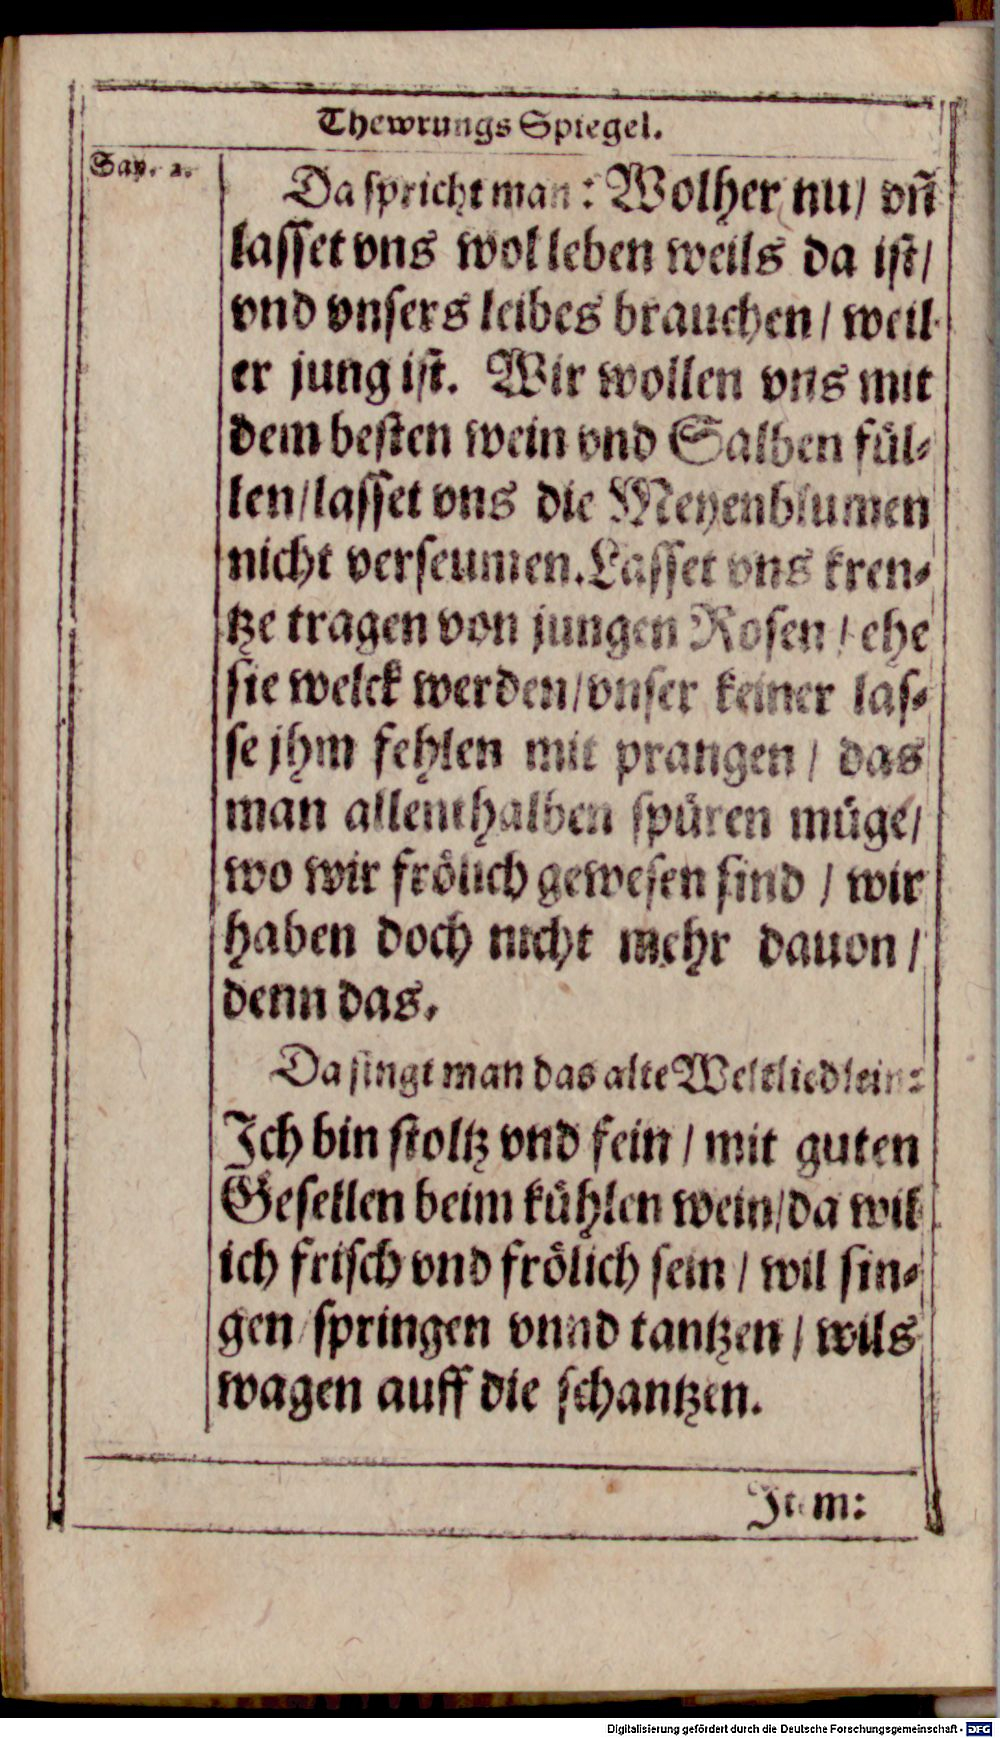 Thewrungs Spiegel.
Sap. 2.
Da spricht man: Wolher nu/ vñ
lasset vns wol leben weils da ist/
vnd vnsers leibes brauchen/ weil
er jung ist. Wir wollen vns mit
dem besten wein vnd Salben fül⸗
len/lasset vns die Meyenblumen
nicht verseumen. Lasset vns kren⸗
tze tragen von jungen Rosen / ehe
sie welck werden/vnser keiner las⸗
se jhm fehlen mit prangen / das
man allenthalben spüren müge/
wo wir frölich gewesen sind / wir
haben doch nicht mehr dauon /
denn das.
Da singt man das alte Weltliedlein:
Ich bin stoltz vnd fein / mit guten
Gesellen beim kühlen wein/da wil
ich frisch vnd frölich sein / wil sin⸗
gen/springen vnnd tantzen / wils
wagen auff die schantzen.
Item:
Digitalisierung gefördert durch die Deutsche Forschungsgemeinschaft - DFG